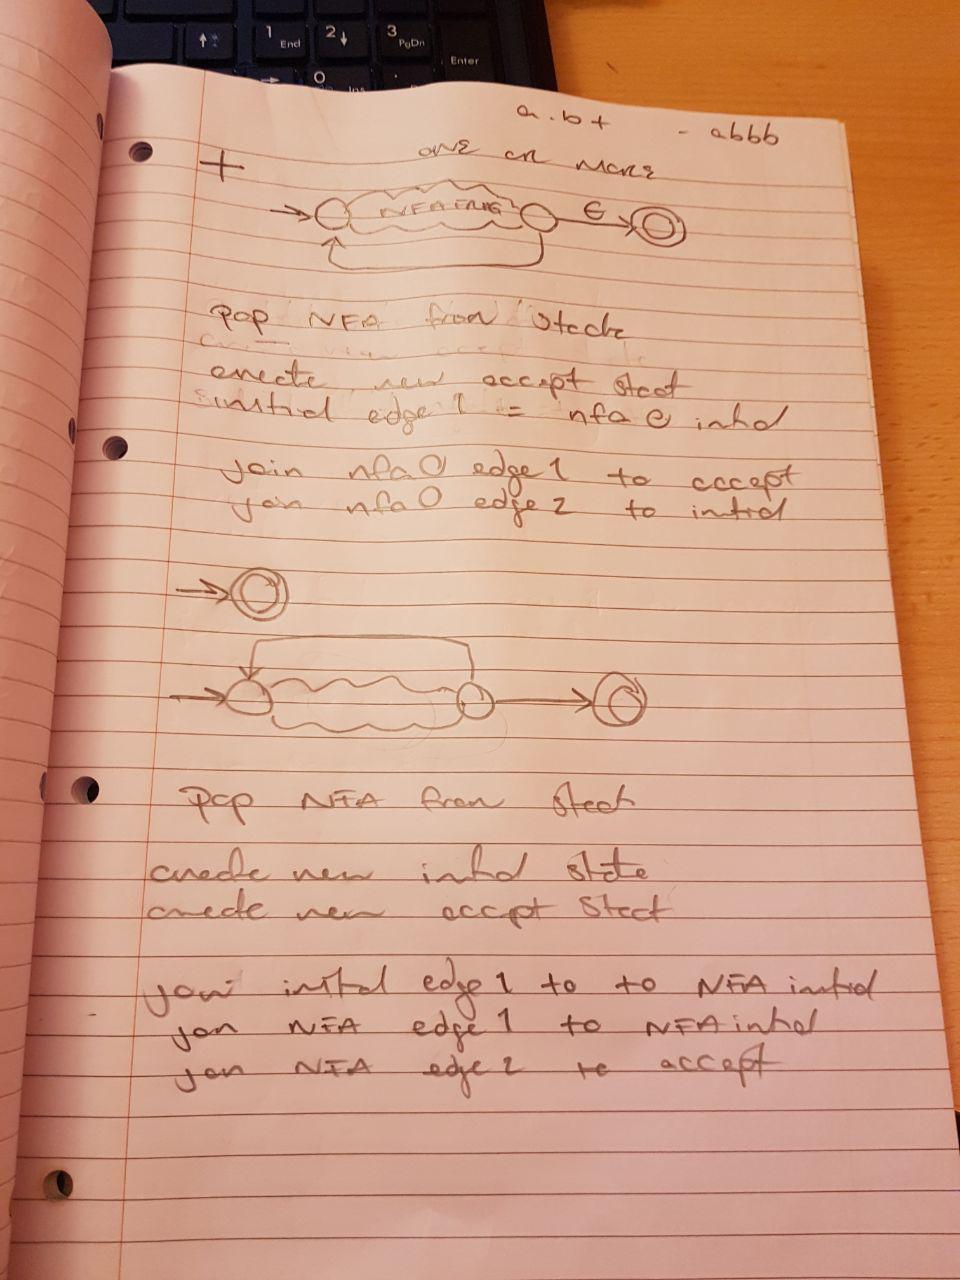 1
End
2
3
PgDn
Enter
0
Ins
a.b+ - abbb
+ ONE OR MORE
NFA FRAG
ε
pop NFA from stack
create new accept staet
initial edge 1 = nfa initial
join nfa0 edge 1 to accept
join nfa0 edge 2 to initial
pop NFA from stack
create new initial state
create new accept staet
join initial edge 1 to to NFA initial
join NFA edge 1 to NFA initial
join NFA edge 2 to accept